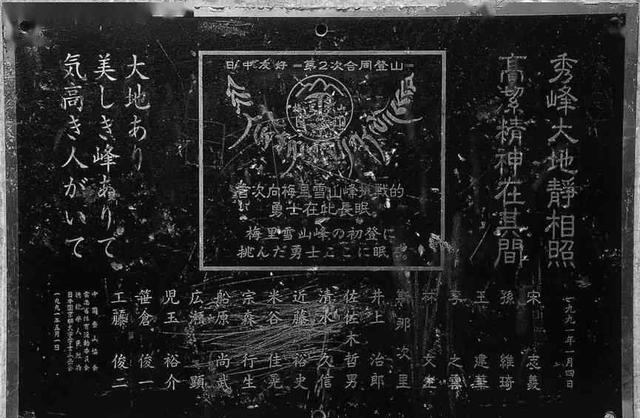 秀峰大地靜相照
高潔精神在其間
日中友好 第2次合同登山
首次向梅里雪山峰挑戦的
勇士在此長眠
梅里雪山峰の初登に
挑んだ勇士ここに眠
大地あり
美しき峰ありて
気高き人がいて
一九九一年一月四日
宋 志義
孫 維琦
王 建華
李 之雲
林 文生
斯那次里
井上 治郎
佐佐木哲男
清水 久信
近藤 裕史
米谷 佳晃
宗森 行生
船原 尚武
広瀬 顕
児玉 裕介
笹倉 俊一
工藤 俊二
中国登山協会
一九九一年五月一日